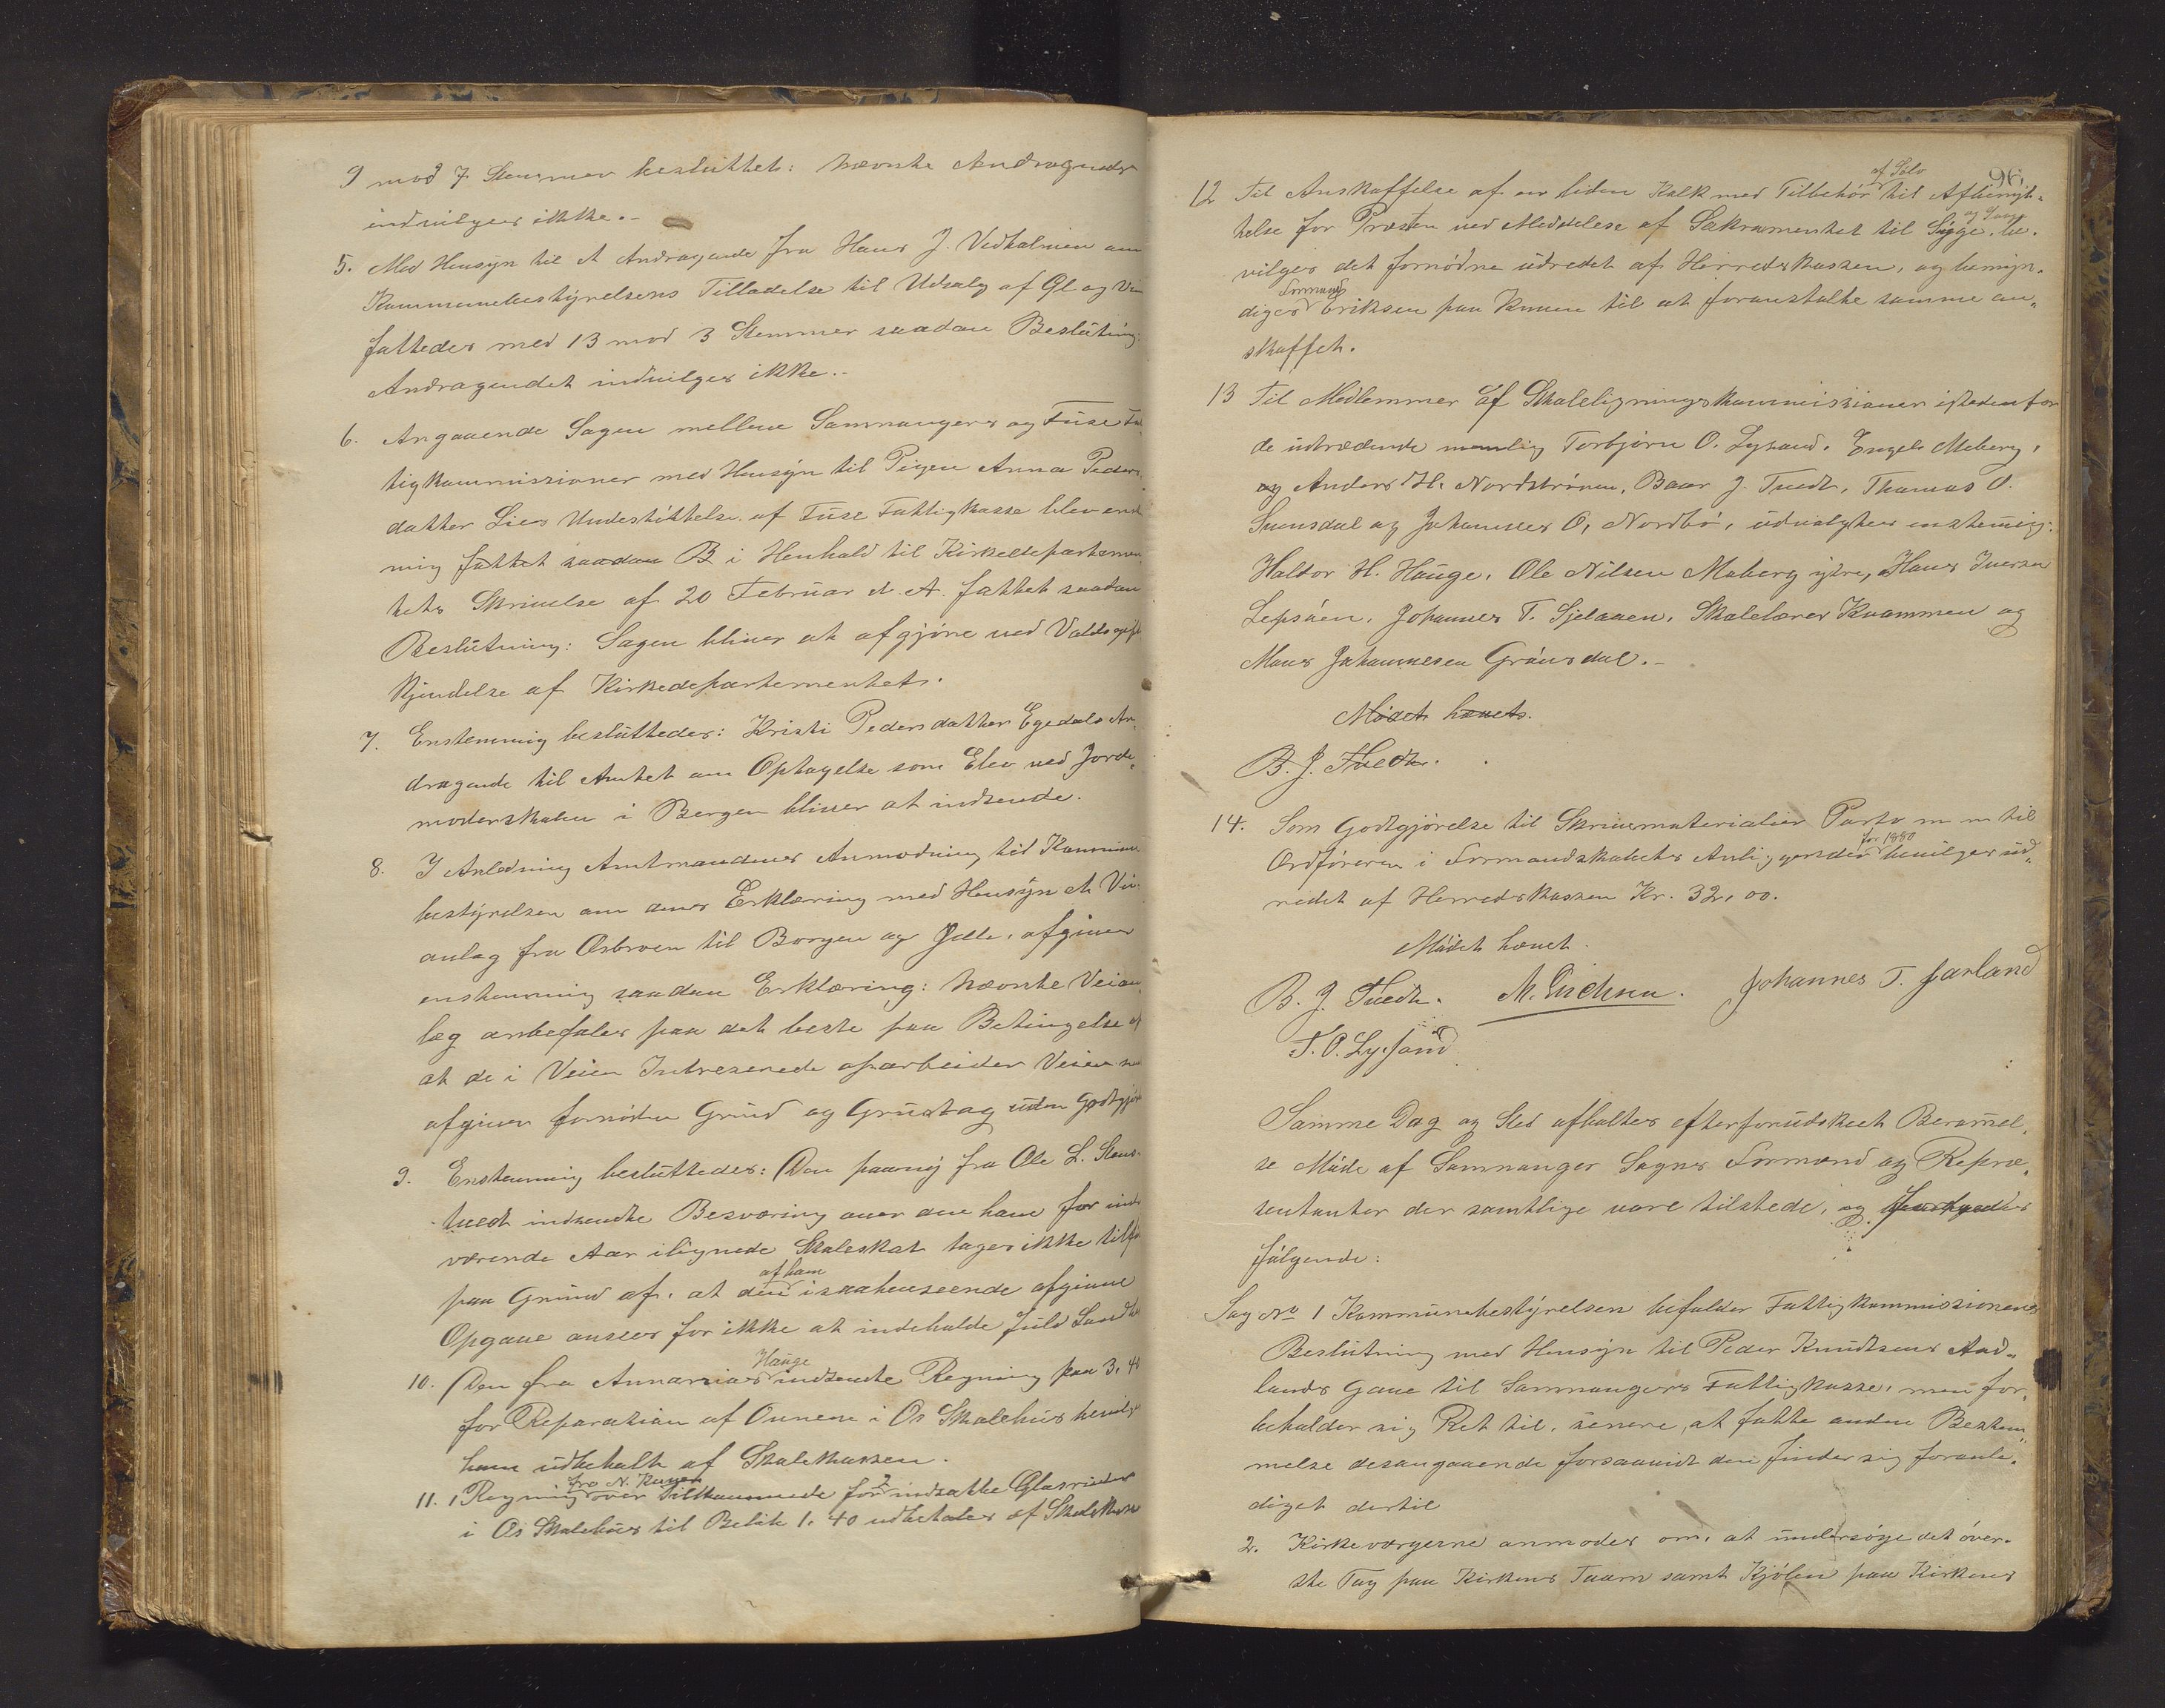 9 mod 7 Stemmer besluttet: Nævnte Andragende
indvilges ikke.-
5. Med Hensyn til et Andragende fra Hans J. Vedholmen om
Kommunebestyrelsens Tilladelse til Udsalg af Øl og Vin
fattedes med 13 mod 3 Stemmer saadan Beslutning:
Andragendet indvilges ikke..
6. Angaaende Sagen mellem Samnangers og Fuse Fat
tigkommissioner med Hensyn til Pigen Anna Peders
datter Lies Understøttelse af Fuse Fattigkasse blev enste
mig fattet saadan B i Henhold til Kirkedepartemen
tets Skrivelse af 20 Februar d. A. fattet saadan
Beslutning: Sagen bliver at afgjøre ved Voldsgifts
Kjendelse af Kirkedepartementet.
7. Enstemmig besluttedes: Kristi Pedersdatter Egedals An,
dragende til Amtet om Optagelse som Elev ved Jorde,
moderskolen i Bergen bliver at indsende.
8. I Anledning Amtmandens Anmodning til Kommune
bestyrelsen om dens Erklæring med Hensyn et Vei
anlæg fra Osbroen til Borgen og Jelle, afgives
enstemmig saadan Erklæring: Nævnte Veian
læg anbefales paa det beste paa Betingelse af
at de i Veien Intreserede oparbeider Veien
afgiver fornøden Grund og Grustag uden Godtgjør
9. Enstemmig besluttedes: (Den paany fra Ole L. Stens
tvedt indsendte Besværing over den ham for inde
værende Aar ilignede Skoleskat tages ikke tilfølge
paa Grund af, at den af ham i saahenseende afgivne
Opgave ansees for ikke at indeholde fuld Sandhed
10. (Den fra Annanias Hauge indsendte Regning paa 3,40
for Reparasion af Ovnene i Os Skolehus bevilges
ham udbetalt af Skolekassen.
11. 1 Regning fra N. over Tilkommende for 2 indsatte Glasruder
i Os Skolehus til Beløb 1.40 udbetales af Skolekassen
96
12 Til Anskaffelse af en liden Kalk med Tilbehør af Sølv til Afbenyt-
telse for Præsten ved Meddelelse af Sakramentet til Syge, be-
vilges det fornødne udredet af Herredskassen, og bemyn-
diges Formand Eriksen paa Kunen til at foranstalte samme an,
skaffet.
13 Til Medlemmer af Skoleligningskommissionen istedenfor
de udtrædende nemlig Torbjørn O. Lysand, Engel Moberg,
og Anders H. Nordstrønen, Baar J. Tvedt, Thomas O.
Svensdal og Johannes O, Nordbø, udvalgtes enstemig:
Haldor H. Hauge, Ole Nilsen Moberg ytre, Hans Iversen
Lepsøen, Johannes T. Sjelaaen, Skolelærer Kvammen og
Mons Johannesen Grønsdal.-
Mødet hævet.
B. J. Tvedt.
14. Som Godtgjørelse til Skrivematerialier Porto m m til
Ordføreren i Formandskabets Anliggender for 1880 bevilges ud,
redet af Herredskassen Kr. 32,00.
Mødet hævet.
B. J. Tvedt. M. Erichsen. Johannes T. Jarland
T. O. Lysand
Samme Dag og Sted afholdtes efter forudskeet Berammel,
se Møde af Samnanger Sogns Formænd og Repræ,
sentanter der samtlige vare tilstede, og
følgende:
Sag No 1 Kommunebestyrelsen bifalder Fattigkommissionens
Beslutning med Hensyn til Peder Knudtsens Aad-
lands Gave til Samnangers Fattigkasse, men for,
beholder sig Ret til, senere, at fatte anden Bestem,
melse desangaaende forsaavidt den finder sig foranle,
diget dertil
2. Kirkeværgerne anmodes om, at undersøge det øver-
ste Tag paa Kirkens Taarn samt Kjølen paa Kirkens